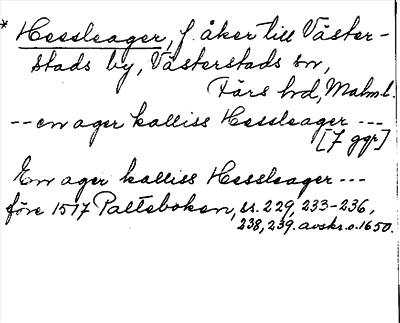 * Hessleager, f. åker till Väster-
stads by, Västerstads sn,
Färs hd, Malm.l.
-- en ager kalliss Hessleager ---
[7 ggr]
En ager kalliss Hessleager ---
före 1517 Palteboken, ss. 229, 233-236,
238, 239. avskr. o. 1650.